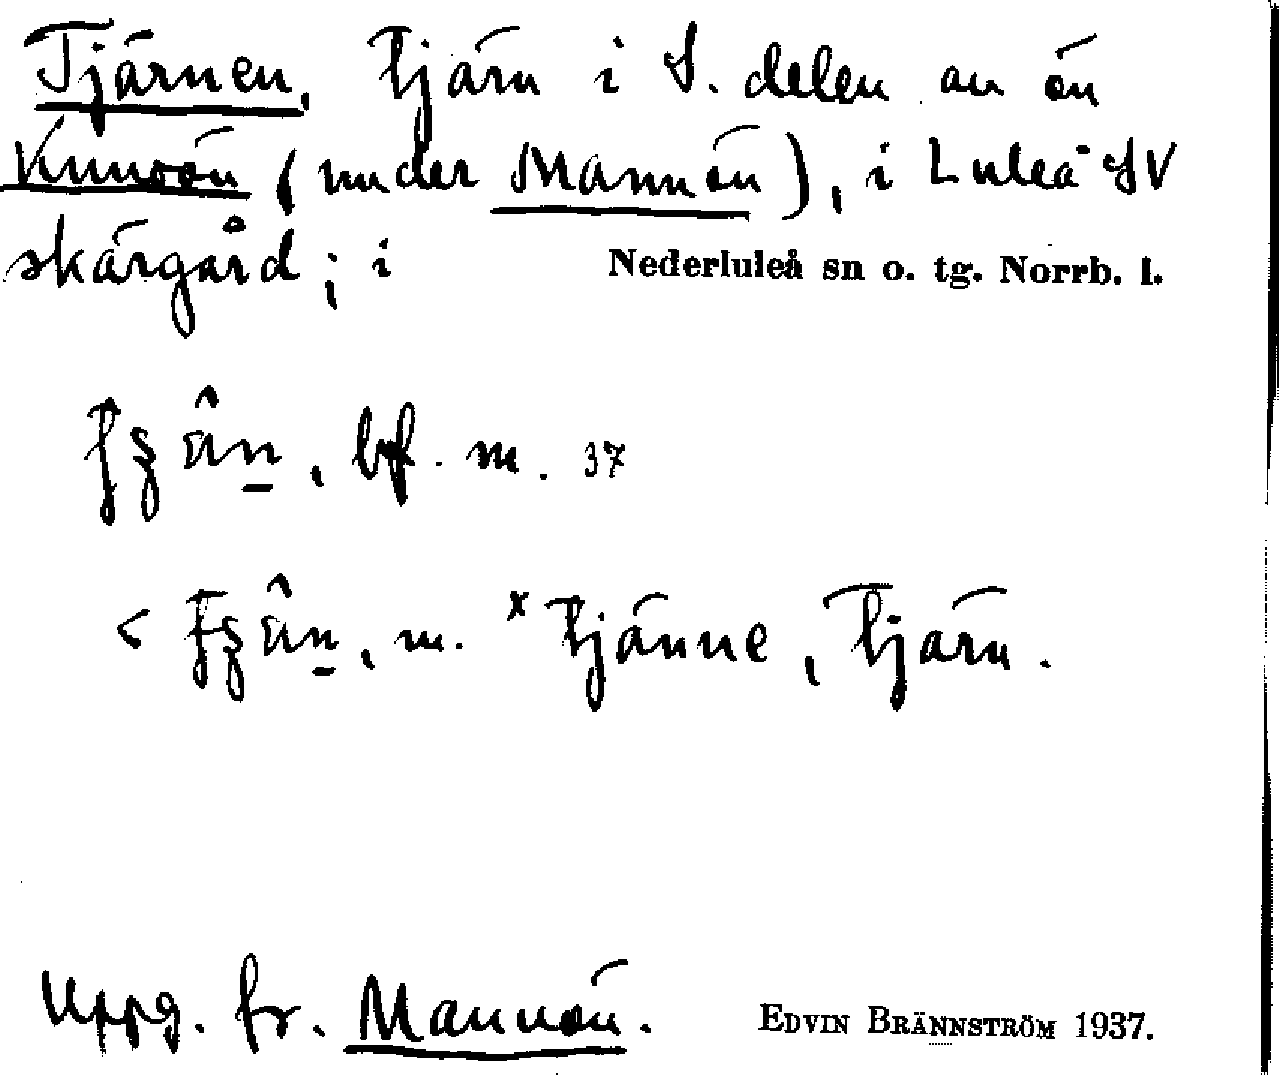 Tjärnen, tjärn i S. delen av ön
(under Mannön), i Luleå SV
skärgård; i Nederluleå sn o. tg. Norrb. l.
bf. m. 37
< m. *tjänne, tjärn.
Uppg. fr. Mannön. EDVIN BRÄNNSTRÖM 1937.